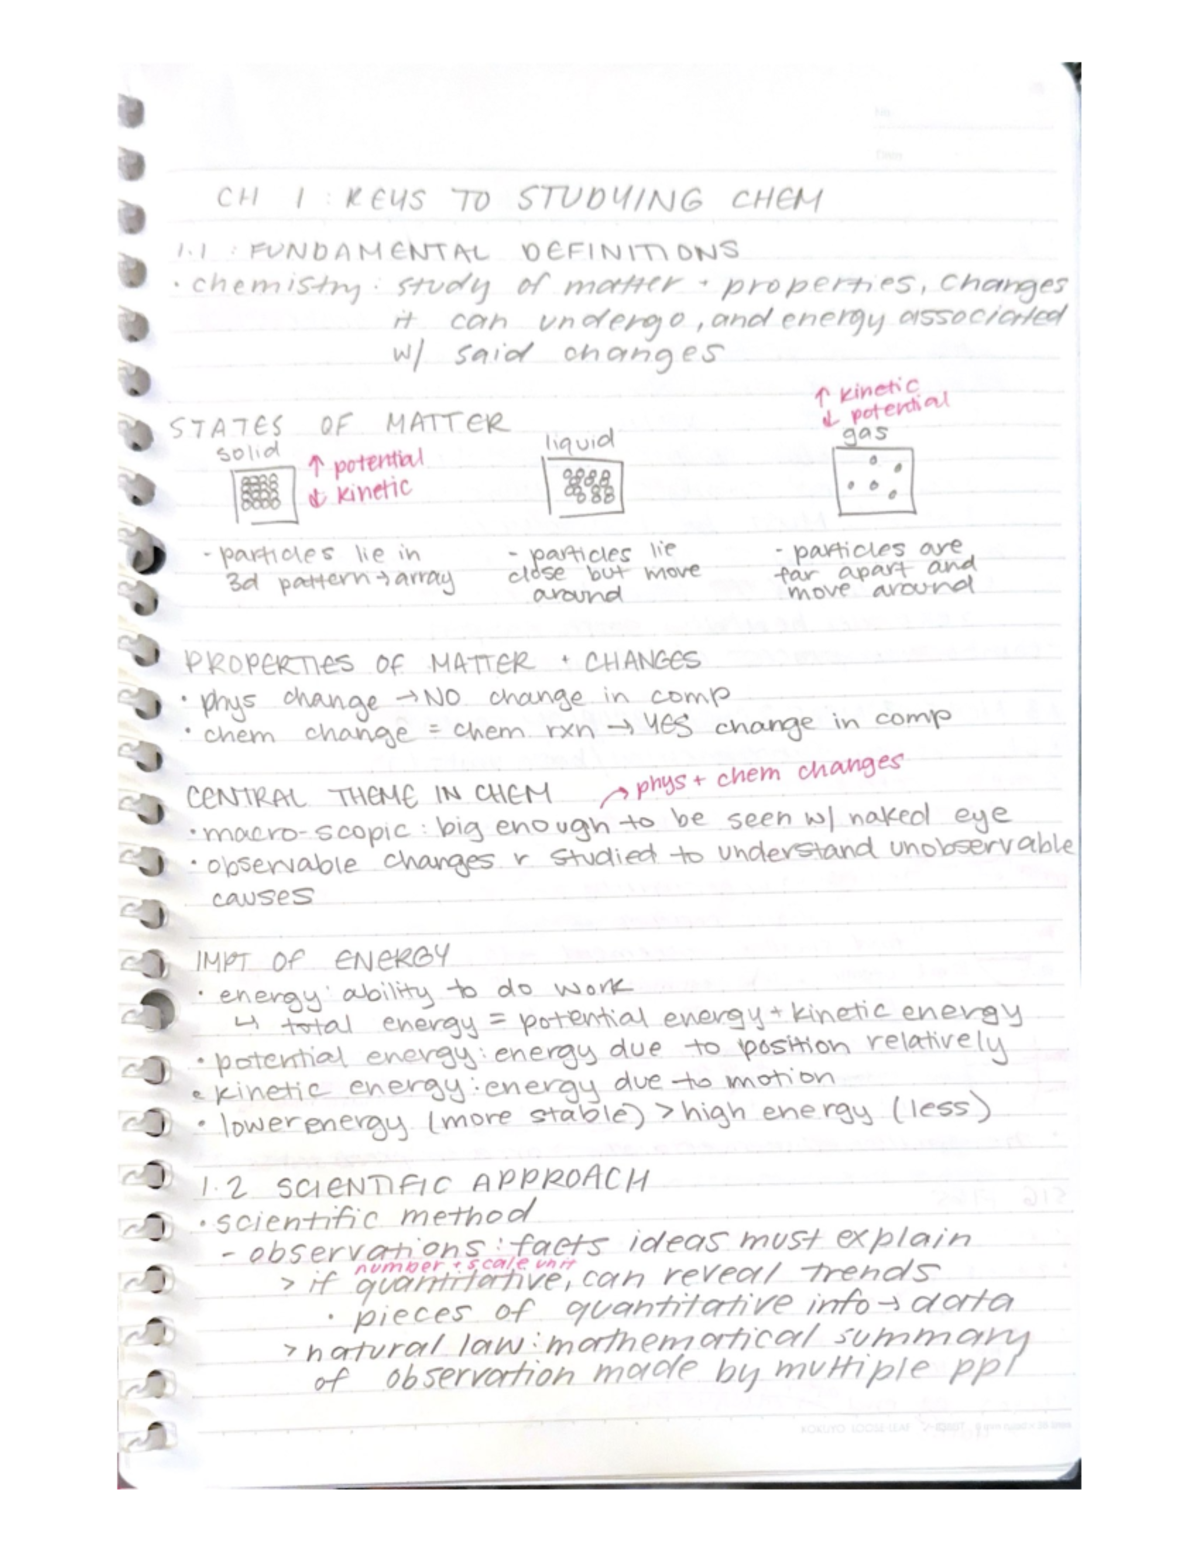 CH 1 : KEYS TO STUDYING CHEM
1.1 : FUNDAMENTAL DEFINITIONS
· chemistry : study of matter + properties, changes
it can undergo, and energy associated
w/ said changes
STATES OF MATTER
solid
↑ potential
↓ kinetic
liquid
↑ kinetic
↓ potential
gas
- particles lie in
3d pattern → array
- particles lie
close but move
around
- particles are
far apart and
move around
PROPERTIES OF MATTER + CHANGES
· phys change → NO change in comp
· chem change = chem rxn → YES change in comp
CENTRAL THEME IN CHEM
→ phys + chem changes
· macro-scopic : big enough to be seen w/ naked eye
· observable changes r studied to understand unobservable
causes
IMPT OF ENERGY
· energy : ability to do work
↳ total energy = potential energy + kinetic energy
· potential energy : energy due to position relatively
· kinetic energy : energy due to motion
· lower energy (more stable) > high energy (less)
1.2 SCIENTIFIC APPROACH
· scientific method
- observations : facts ideas must explain
number + scale unit
> if quantitative, can reveal trends
· pieces of quantitative info → data
> natural law : mathematical summary
of observation made by multiple ppl
KOKUYO LOOSE-LEAF